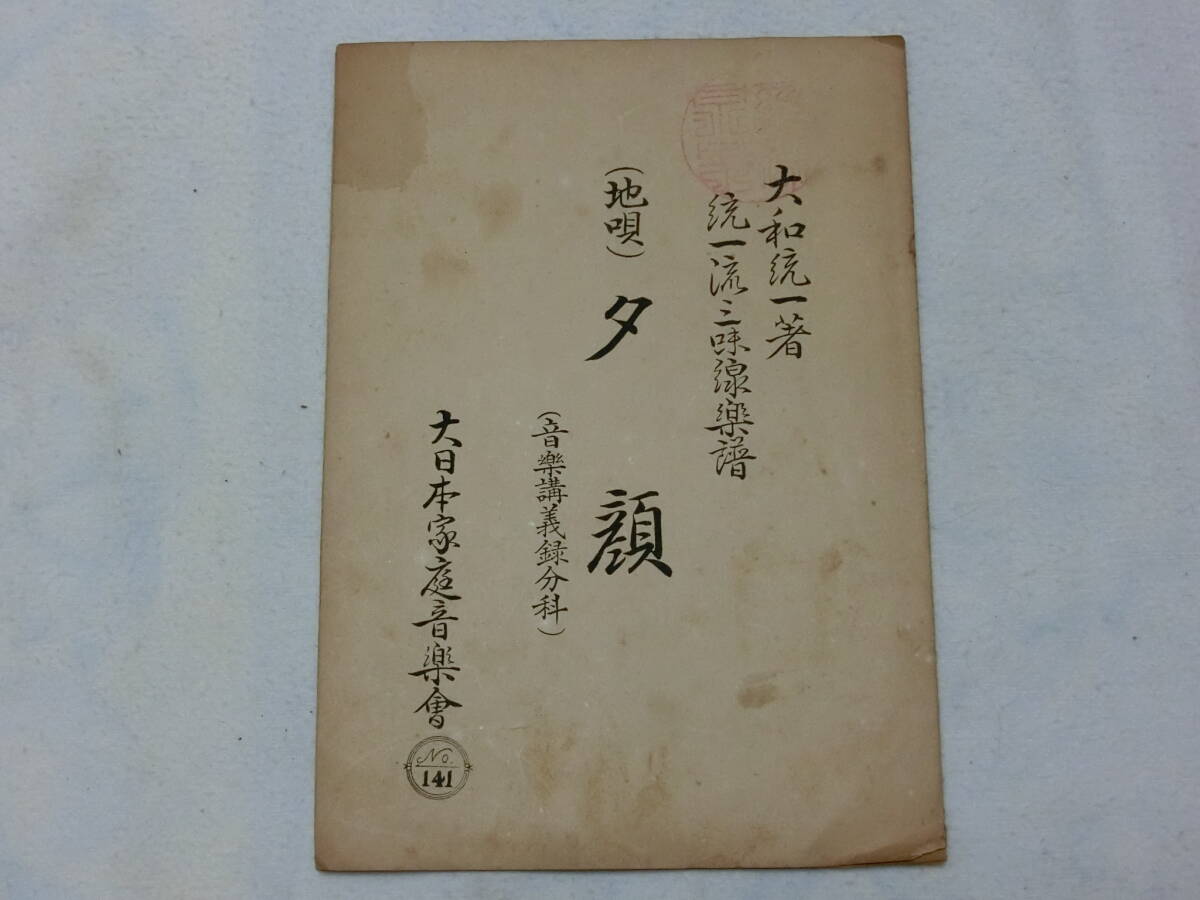 大和統一著
統一流三味線樂譜
(地唄) 夕顔
(音樂講義録分科)
大日本家庭音樂會
No.
141